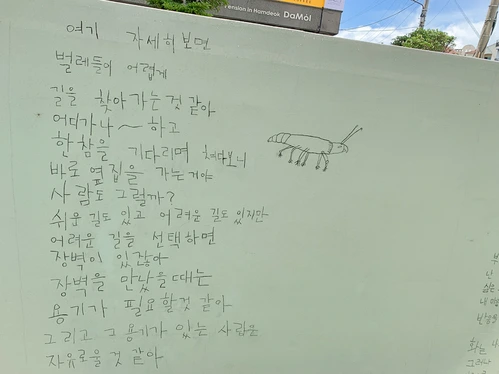 Pension in Hamdeok DaMôl
여기 자세히 보면
벌레들이 어렵게
길을 찾아가는것 같아
어디가나~하고
한참을 기다리며 쳐다보니
바로 옆집을 가는거야
사람도 그럴까?
쉬운 길도 있고 어려운 길도 있지만
어려운 길을 선택하면
장벽이 있잖아
장벽을 만났을때는
용기가 필요할것 같아
그리고 그 용기가 있는 사람은
자유로울 것 같아
난
내
화는
그러나